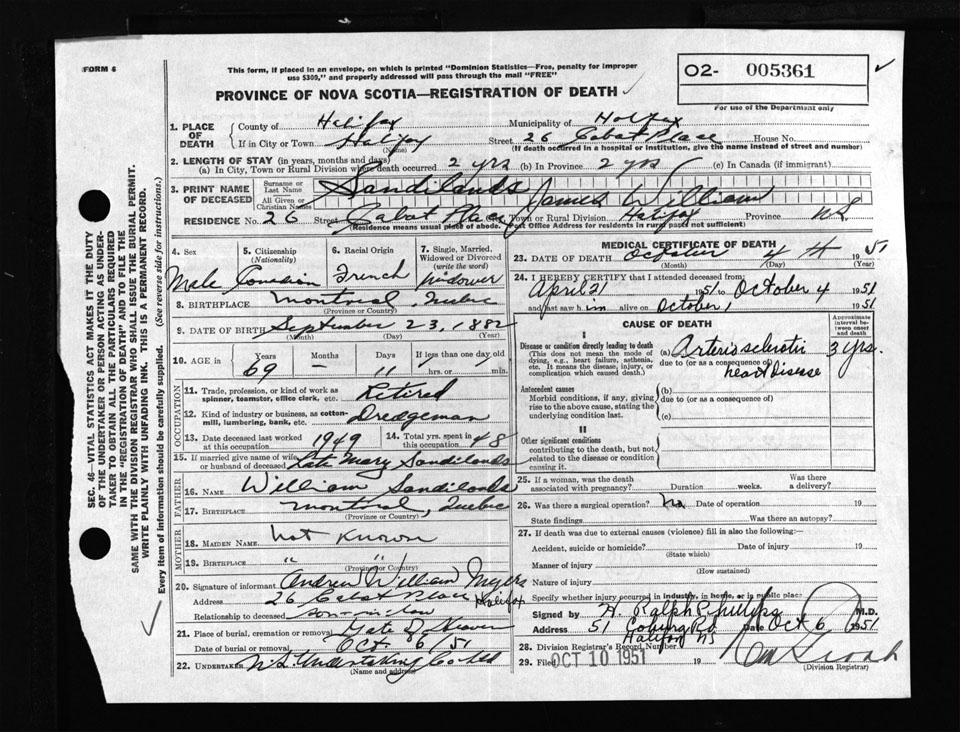 FORM 6
This form, if placed in an envelope, on which is printed "Dominion Statistics—Free, penalty for improper
use $300," and properly addressed will pass through the mail "FREE"
PROVINCE OF NOVA SCOTIA—REGISTRATION OF DEATH
02- 005361
For use of the Department only
SEC. 46—VITAL STATISTICS ACT MAKES IT THE DUTY
OF THE UNDERTAKER OR PERSON ACTING AS UNDER-
TAKER TO OBTAIN ALL THE PARTICULARS REQUIRED
IN THE "REGISTRATION OF DEATH" AND TO FILE THE
SAME WITH THE DIVISION REGISTRAR WHO SHALL ISSUE THE BURIAL PERMIT.
WRITE PLAINLY WITH UNFADING INK. THIS IS A PERMANENT RECORD.
Every item of information should be carefully supplied. (See reverse side for instructions.)
1. PLACE OF DEATH
County of Halifax Municipality of Halifax
If in City or Town Halifax Street 26 Cabot Place House No.
(Name) (If death occurred in a hospital or institution, give the name instead of street and number)
2. LENGTH OF STAY (in years, months and days)
(a) In City, Town or Rural Division where death occurred 2 yrs (b) In Province 2 yrs (c) In Canada (if immigrant)
3. PRINT NAME OF DECEASED
Surname or Last Name Sandilands
All Given or Christian Names James William
RESIDENCE No. 26 Street Cabot Place Town or Rural Division Halifax Province NS
(Residence means usual place of abode. Post Office Address for residents in rural parts not sufficient)
4. Sex
Male
5. Citizenship (Nationality)
Canadian
6. Racial Origin
French
7. Single, Married, Widowed or Divorced (write the word)
Widower
8. BIRTHPLACE Montreal, Quebec
(Province or Country)
9. DATE OF BIRTH September 23, 1882
(Month) (Day) (Year)
10. AGE in Years 69 Months — Days 11 If less than one day old hrs. or min.
OCCUPATION
11. Trade, profession, or kind of work as spinner, teamster, office clerk, etc. Retired
12. Kind of industry or business, as cotton-mill, lumbering, bank, etc. Dredgeman
13. Date deceased last worked at this occupation 1949
14. Total yrs. spent in this occupation 48
15. If married give name of wife or husband of deceased Late Mary Sandilands
FATHER
16. NAME William Sandilands
17. BIRTHPLACE Montreal, Quebec
(Province or Country)
MOTHER
18. MAIDEN NAME Not Known
19. BIRTHPLACE " "
(Province or Country)
20. Signature of informant Andrew William Myers
Address 26 Cabot Place Halifax
Relationship to deceased son-in-law
21. Place of burial, cremation or removal Gate of Heaven
Date of burial or removal Oct. 6/51
22. UNDERTAKER N.S. Undertaking Co Ltd
(Name and address)
MEDICAL CERTIFICATE OF DEATH
23. DATE OF DEATH October 4th 1951
(Month) (Day)
24. I HEREBY CERTIFY that I attended deceased from:
April 21 1951 to October 4 1951
and last saw him alive on October 1 1951
CAUSE OF DEATH
Approximate interval between onset and death
I
Disease or condition directly leading to death
(This does not mean the mode of dying, e.g., heart failure, asthenia, etc. It means the disease, injury, or complication which caused death.)
(a) Arteriosclerotic 3 yrs.
due to (or as a consequence of)
heart disease
Antecedent causes
Morbid conditions, if any, giving rise to the above cause, stating the underlying condition last.
(b)
due to (or as a consequence of)
(c)
II
Other significant conditions
contributing to the death, but not related to the disease or condition causing it.
25. If a woman, was the death associated with pregnancy? Duration weeks. Was there a delivery?
26. Was there a surgical operation? No Date of operation 19
State findings Was there an autopsy?
27. If death was due to external causes (violence) fill in also the following:—
Accident, suicide or homicide? Date of injury 19
(State which)
Manner of injury
(How sustained)
Nature of injury
Specify whether injury occurred in industry, in home, or in public place:
Signed by H. Ralph Phillips M.D.
Address 51 Coburg Rd. Date Oct 6 1951
Halifax NS
28. Division Registrar's Record Number
29. Filed OCT 10 1951
(Division Registrar)